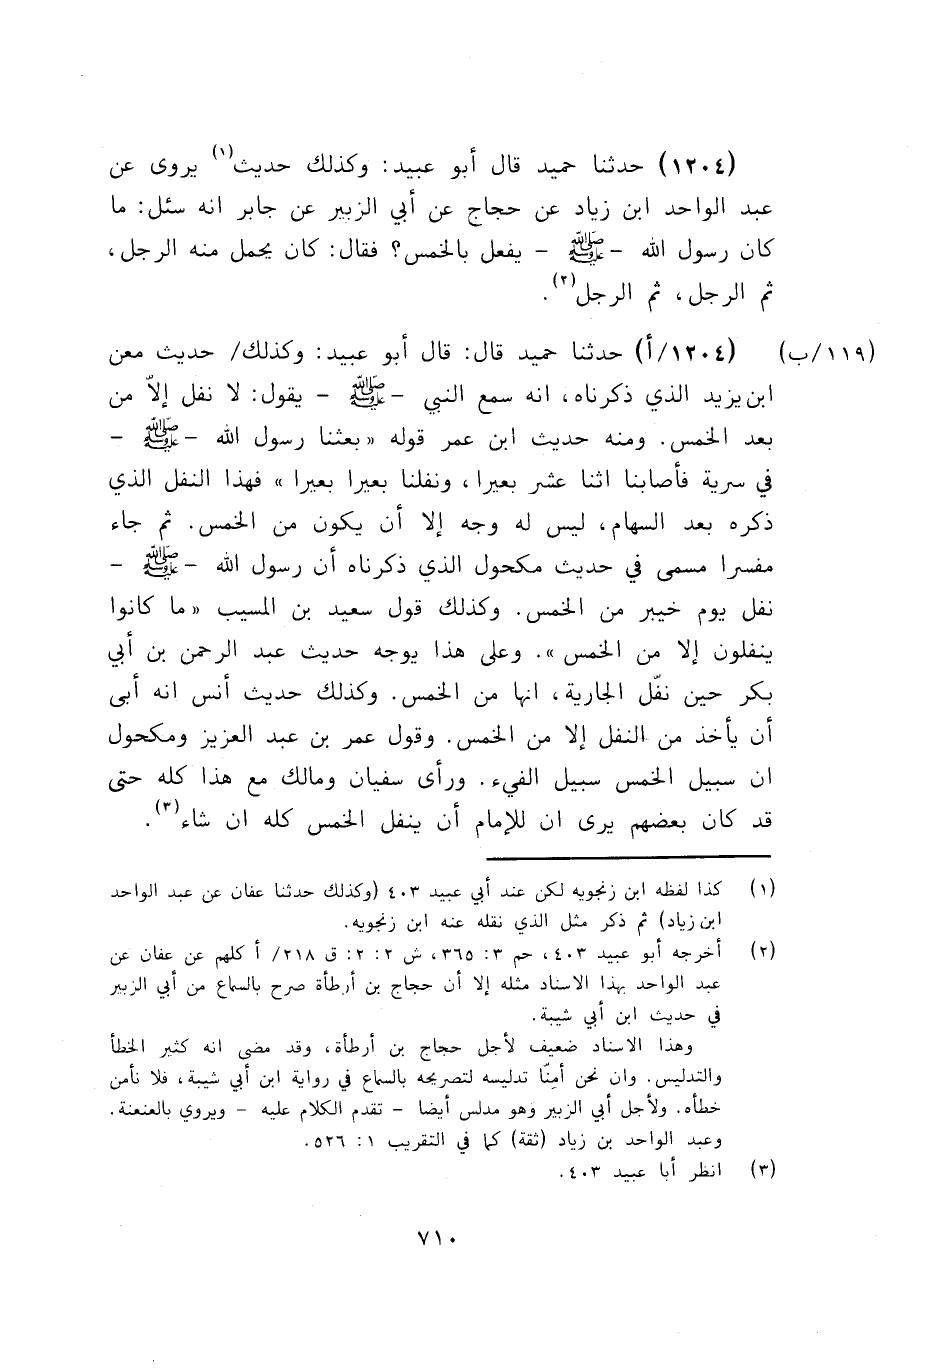 (١٢٠٤) حدثنا حميد قال أبو عبيد: وكذلك حديث(١) يروى عن
عبد الواحد ابن زياد عن حجاج عن أبي الزبير عن جابر انه سئل: ما
كان رسول الله - ﷺ - يفعل بالخمس؟ فقال: كان يحمل منه الرجل،
ثم الرجل، ثم الرجل(٢).
(١١٩/ب) (١٢٠٤/أ) حدثنا حميد قال: قال أبو عبيد: وكذلك/ حديث معن
ابن يزيد الذي ذكرناه، انه سمع النبي - ﷺ - يقول: لا نفل إلاّ من
بعد الخمس. ومنه حديث ابن عمر قوله « بعثنا رسول الله - ﷺ -
في سرية فأصابنا اثنا عشر بعيرا، ونفلنا بعيرا بعيرا » فهذا النفل الذي
ذكره بعد السهام، ليس له وجه إلا أن يكون من الخمس. ثم جاء
مفسرا مسمى في حديث مكحول الذي ذكرناه أن رسول الله - ﷺ -
نفل يوم خيبر من الخمس. وكذلك قول سعيد بن المسيب « ما كانوا
ينفلون إلا من الخمس ». وعلى هذا يوجه حديث عبد الرحمن بن أبي
بكر حين نفّل الجارية، انها من الخمس. وكذلك حديث أنس انه أبى
أن يأخذ من النفل إلا من الخمس. وقول عمر بن عبد العزيز ومكحول
ان سبيل الخمس سبيل الفيء. ورأى سفيان ومالك مع هذا كله حتى
قد كان بعضهم يرى ان للإمام أن ينفل الخمس كله ان شاء(٣).
(١) كذا لفظه ابن زنجويه لكن عند أبي عبيد ٤٠٣ (وكذلك حدثنا عفان عن عبد الواحد
ابن زياد) ثم ذكر مثل الذي نقله عنه ابن زنجويه.
(٢) أخرجه أبو عبيد ٤٠٣، حم ٣: ٣٦٥، ش ٢: ٢: ق ٢١٨/ أ كلهم عن عفان عن
عبد الواحد بهذا الاسناد مثله إلا أن حجاج بن أرطأة صرح بالسماع من أبي الزبير
في حديث ابن أبي شيبة.
وهذا الاسناد ضعيف لأجل حجاج بن أرطأة، وقد مضى انه كثير الخطأ
والتدليس. وان نحن أمنّا تدليسه لتصريحه بالسماع في رواية ابن أبي شيبة، فلا نأمن
خطأه. ولأجل أبي الزبير وهو مدلس أيضا - تقدم الكلام عليه - ويروي بالعنعنة.
وعبد الواحد بن زياد (ثقة) كما في التقريب ١: ٥٢٦.
(٣) انظر أبا عبيد ٤٠٣.
٧١٠